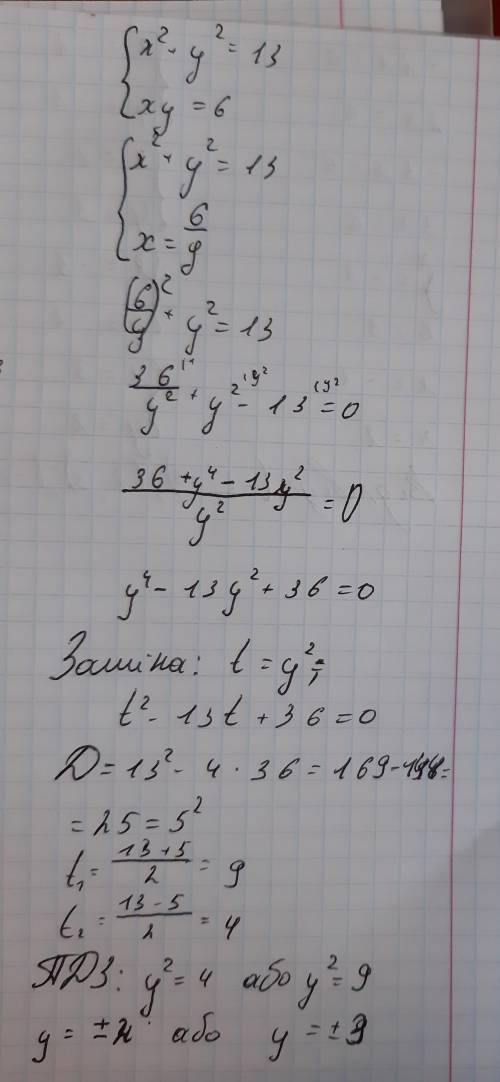 { x² + y² = 13
xy = 6
{ x² + y² = 13
x = 6/y
(6/y)² + y² = 13
36/y² + y² - 13 = 0
(36 + y⁴ - 13y²)/y² = 0
y⁴ - 13y² + 36 = 0
Заміна: t = y²;
t² - 13t + 36 = 0
D = 13² - 4 · 36 = 169 - 144 =
= 25 = 5²
t₁ = (13 + 5)/2 = 9
t₂ = (13 - 5)/2 = 4
ПДЗ: y² = 4 або y² = 9
y = ±2 або y = ±3